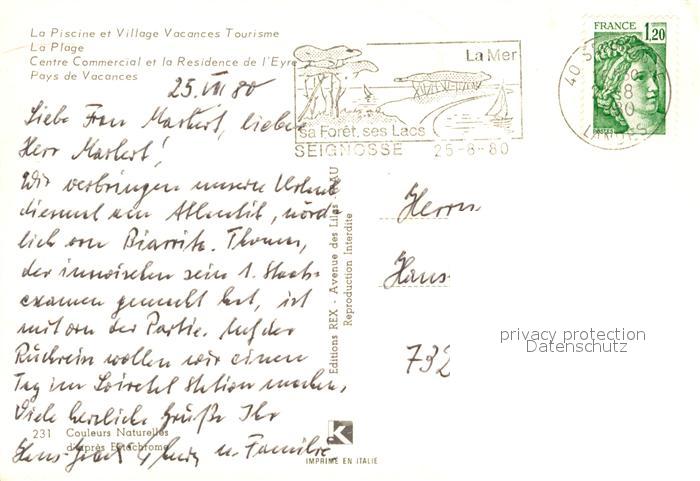 La Piscine et Village Vacances Tourisme
La Plage
Centre Commercial et la Residence de l'Eyre
Pays de Vacances
25. VIII 80
Liebe Frau Markert, lieber
Herr Markert!
Wir verbringen unseren Urlaub
diesmal am Atlantik, nörd-
lich von Biarritz. Thomas,
der inzwischen sein 1. Staats-
examen gemacht hat, ist
mit von der Partie. Auf der
Rückreise wollen wir einen
Tag im Loiretal Station machen.
Viele herzliche Grüße Ihr
Hans- u. Familie
231 Couleurs Naturelles
d'après Ektachrome
Editions REX - Avenue des Lilas - PAU
Reproduction Interdite
K
IMPRIMÉ EN ITALIE
La Mer
sa Forêt, ses Lacs
SEIGNOSSE 25-8-80
FRANCE
1,20
POSTES
40
LANDES
Herrn
Hans
732
privacy protection
Datenschutz